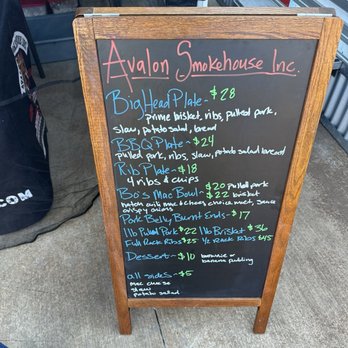 Avalon Smokehouse Inc.
Big Head Plate - $28
prime brisket, ribs, pulled pork,
slaw, potato salad, bread
BBQ Plate - $24
pulled pork, ribs, slaw, potato salad, bread
Rib Plate - $18
4 ribs & chips
Bo's Mac Bowl - $20 pulled pork
$22 brisket
mac & cheese, choice meat, sauce
crispy onions
Pork Belly Burnt Ends - $17
1 lb Pulled Pork $22 1 lb Brisket $36
Full Rack Ribs $25 1/2 Rack Ribs
Dessert - $10 brownie or
banana pudding
all sides - $5
mac cheese
slaw
potato salad
.COM